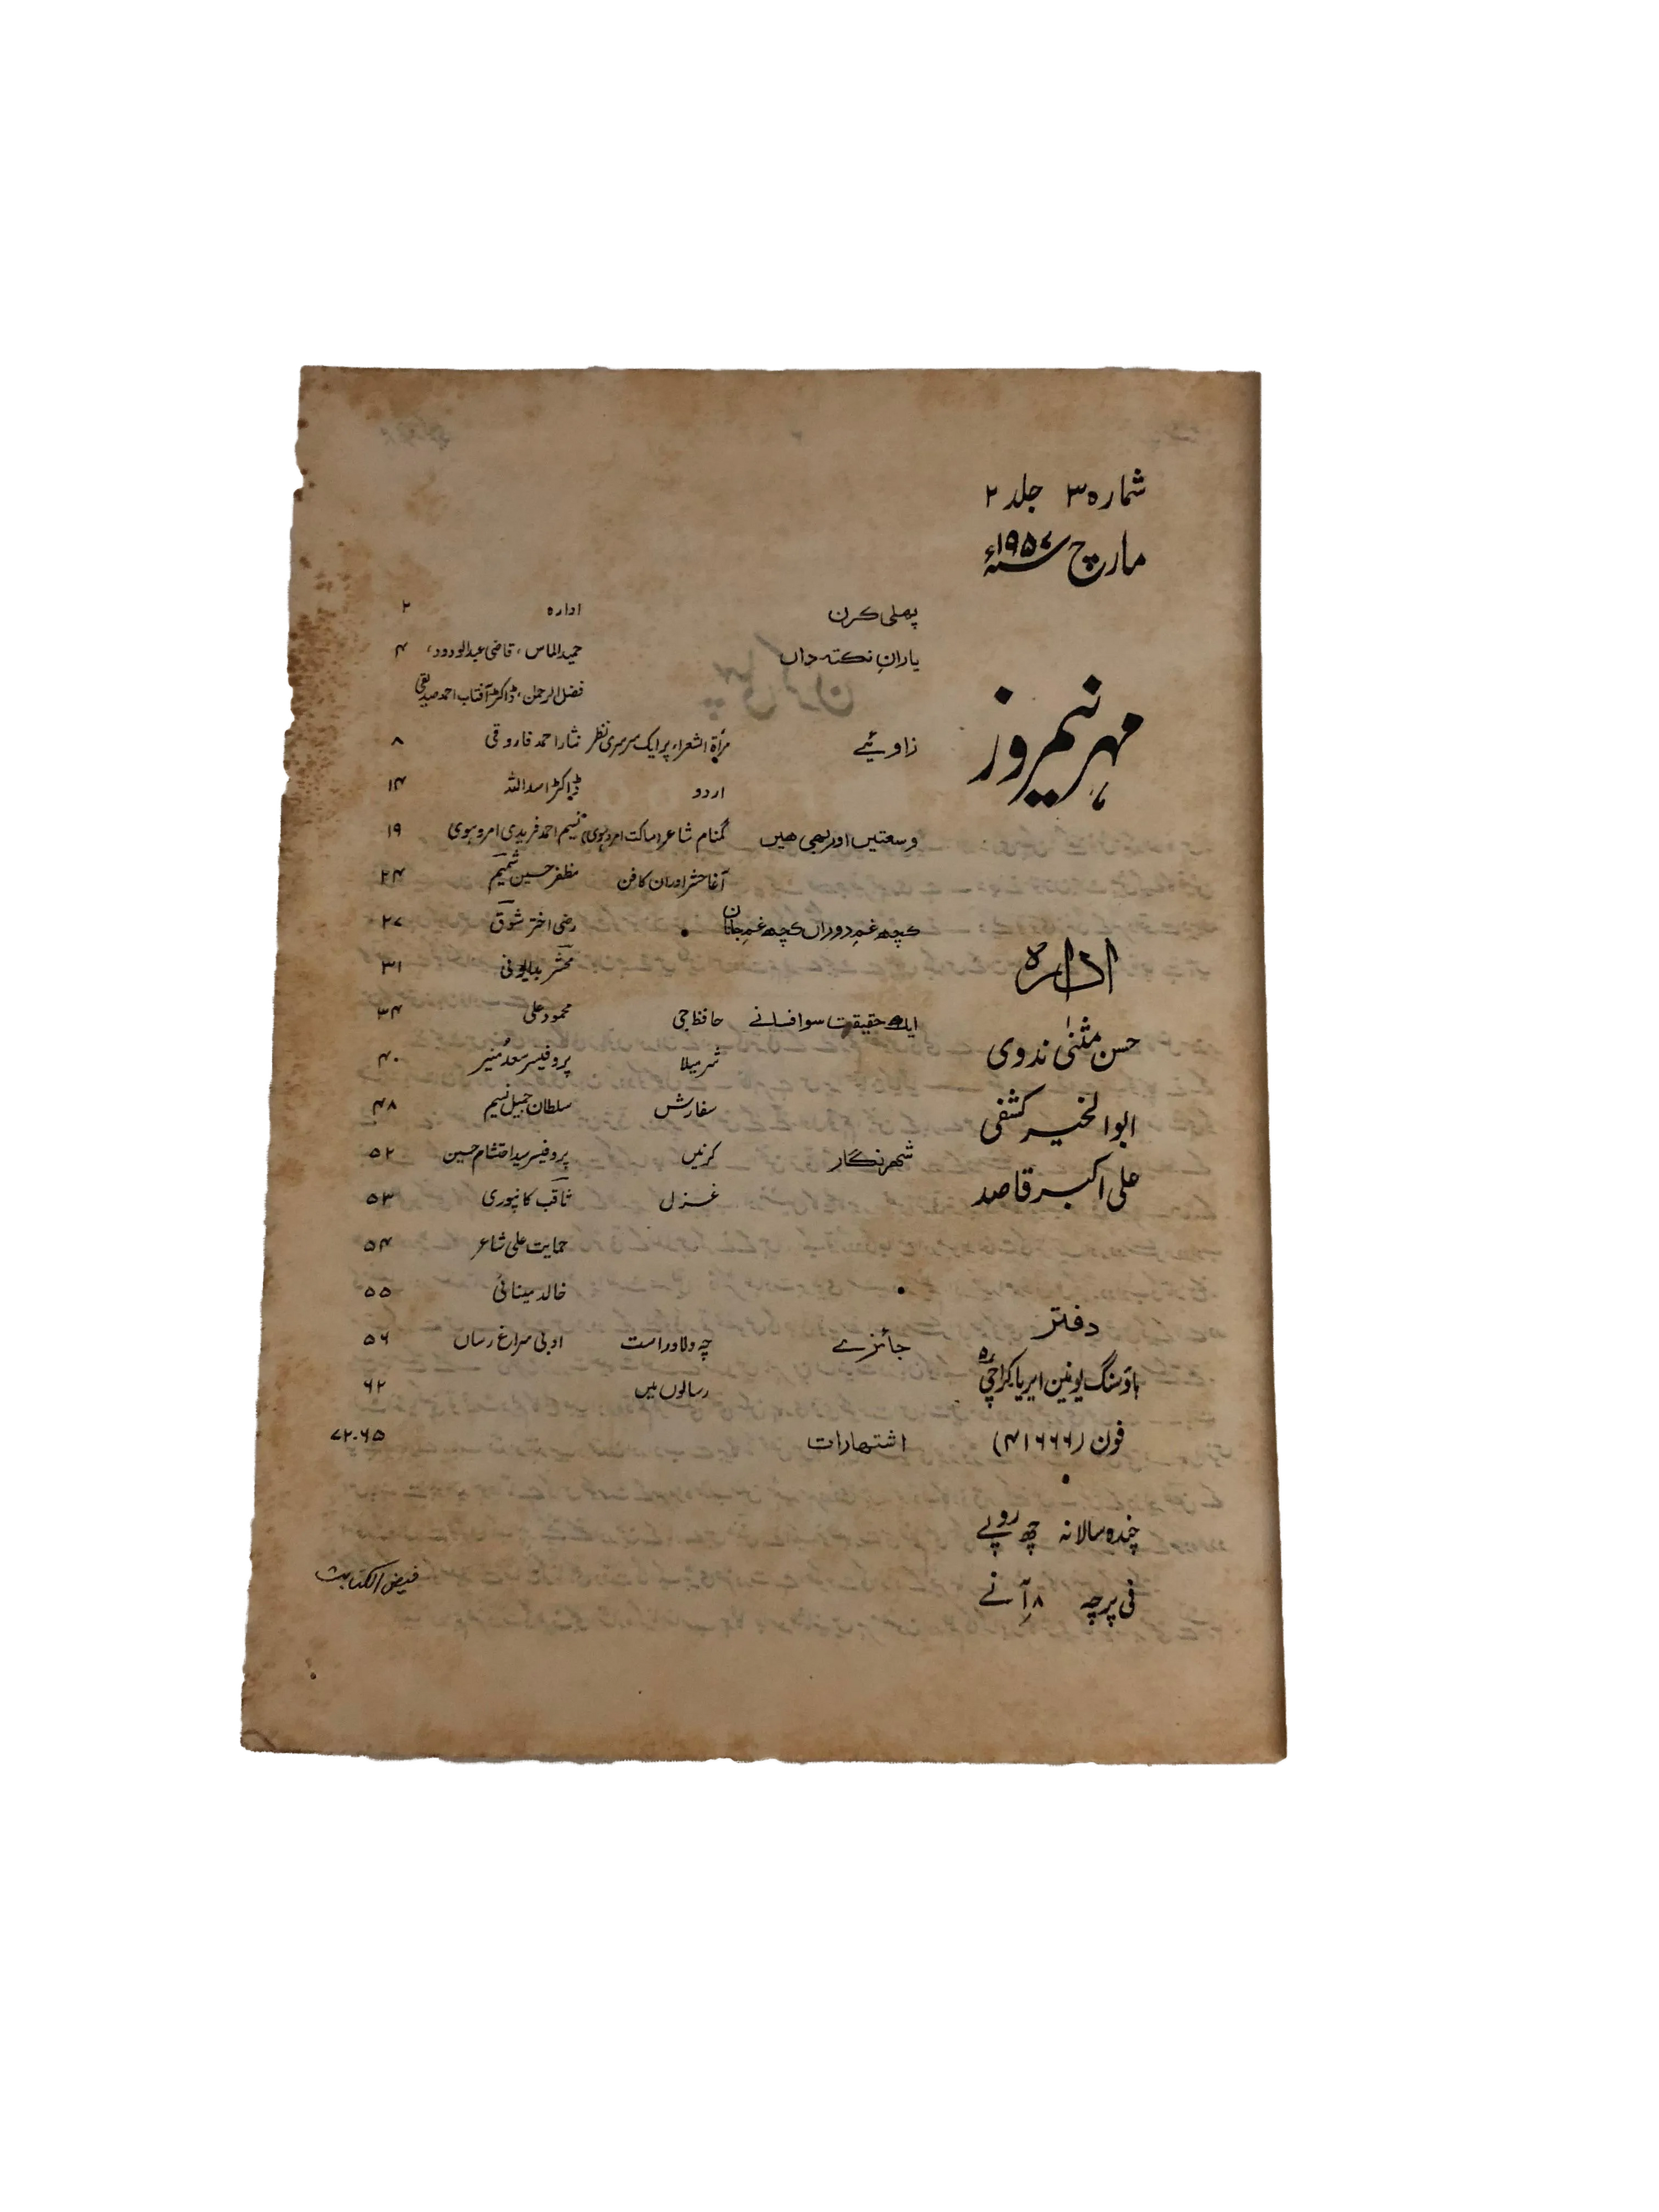 شمارہ ۳ جلد ۲
مارچ سنہ ۱۹۵۷ء
مہر نیمروز
ادارہ
حسن مثنیٰ ندوی
ابوالخیر کشفی
علی اکبر قاصد
دفتر
ہاؤسنگ یونین ایریا کراچی ۵
فون (۴۱۶۶۶)
چندہ سالانہ چھ روپے
فی پرچہ ۸ آنے
پہلی کرن ادارہ ۲
یارانِ نکتہ داں حمید الماس، قاضی عبدالودود، ۴
فضل الرحمٰن، ڈاکٹر آفتاب احمد صدیقی
زاوئیے مرأۃ الشعراء پر ایک سرسری نظر نثار احمد فاروقی ۸
اردو ڈاکٹر اسد اللہ ۱۴
وسعتیں اور بھی ھیں گمنام شاعر (ساکت امروہوی) نسیم احمد فریدی امروہوی ۱۹
آغا حشر اور ان کا فن مظفر حسین شمیم ۲۴
کچھ غمِ دوراں کچھ غمِ جاناں • رضی اختر شوق ۲۷
محشر بدایونی ۳۱
ایک حقیقت سو افسانے حافظ جی محمود علی ۳۴
شرمیلا پروفیسر سعد منیر ۴۰
سفارش سلطان جمیل نسیم ۴۸
شہر نگار کرنیں پروفیسر سید احتشام حسین ۵۲
غزل ثاقب کانپوری ۵۳
حمایت علی شاعر ۵۴
• خالد مینائی ۵۵
جائزے چہ دلاور است ادبی سراغ رساں ۵۶
رسالوں میں ۶۲
اشتھارات ۶۵-۷۲
فیض الکتابت